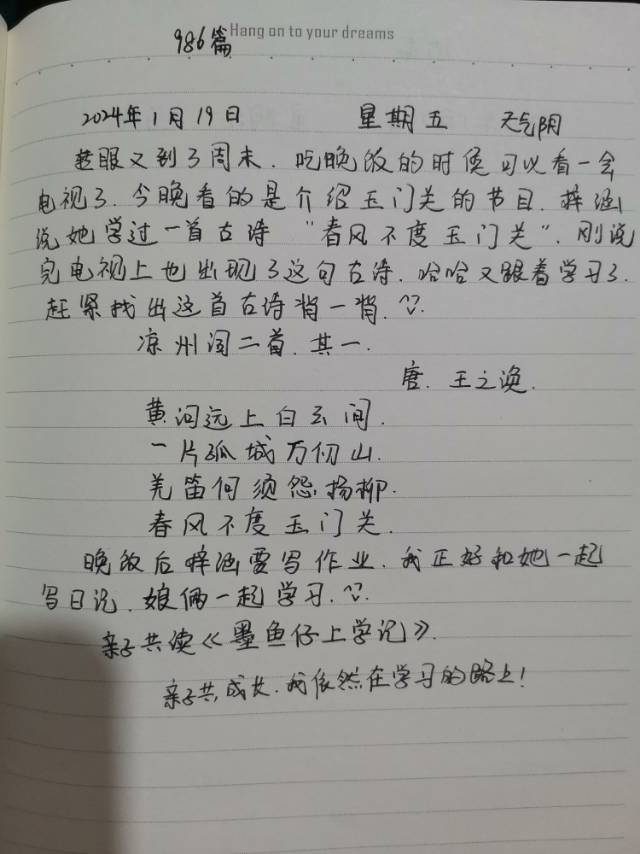 986篇 Hang on to your dreams
2024年1月19日 星期五 天气阴
转眼又到了周末.吃晚饭的时候可以看一会
电视了.今晚看的是介绍玉门关的节目.梓涵
说她学过一首古诗 "春风不度玉门关".刚说
完电视上也出现了这句古诗.哈哈又跟着学习了.
赶紧找出这首古诗背一背.
凉州词二首.其一.
唐.王之涣.
黄河远上白云间.
一片孤城万仞山.
羌笛何须怨扬柳.
春风不度玉门关.
晚饭后梓涵要写作业.我正好和她一起
写日记.娘俩一起学习.
亲子共读《墨鱼仔上学记》.
亲子共成长.我依然在学习的路上!